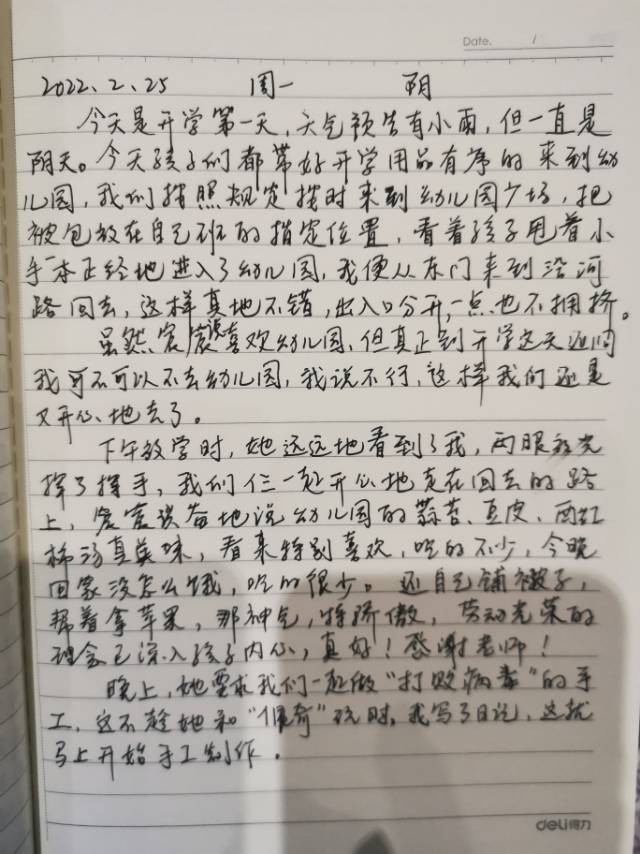 Date. /
2022.2.25 周一 阴
今天是开学第一天，天气预告有小雨，但一直是
阴天。今天孩子们都带好开学用品有序的来到幼
儿园，我们按照规定按时来到幼儿园广场，把
被包放在自己班的指定位置，看着孩子甩着小
手一本正经地进入了幼儿园，我便从东门来到沿河
路回去，这样真地不错，出入口分开，一点也不拥挤。
虽然宸宸说喜欢幼儿园，但真正到开学这天还问
我可不可以不去幼儿园，我说不行，这样我们还是
又开心地去了。
下午放学时，她远远地看到了我，两眼放光
挥了挥手，我们仨一起开心地走在回去的路
上，宸宸地说幼儿园的蒜苔、豆皮、西红
柿汤真美味，看来特别喜欢，吃的不少，今晚
回家没怎么饿，吃的很少。还自己铺被子，
帮着拿苹果，那神气，特骄傲，劳动光荣的
理念已深入孩子内心，真好！感谢老师！
晚上，她要求我们一起做“打败病毒”的手
工，这不趁她和“佩奇”玩时，我写了日记，这就
马上开始手工制作。
deli得力